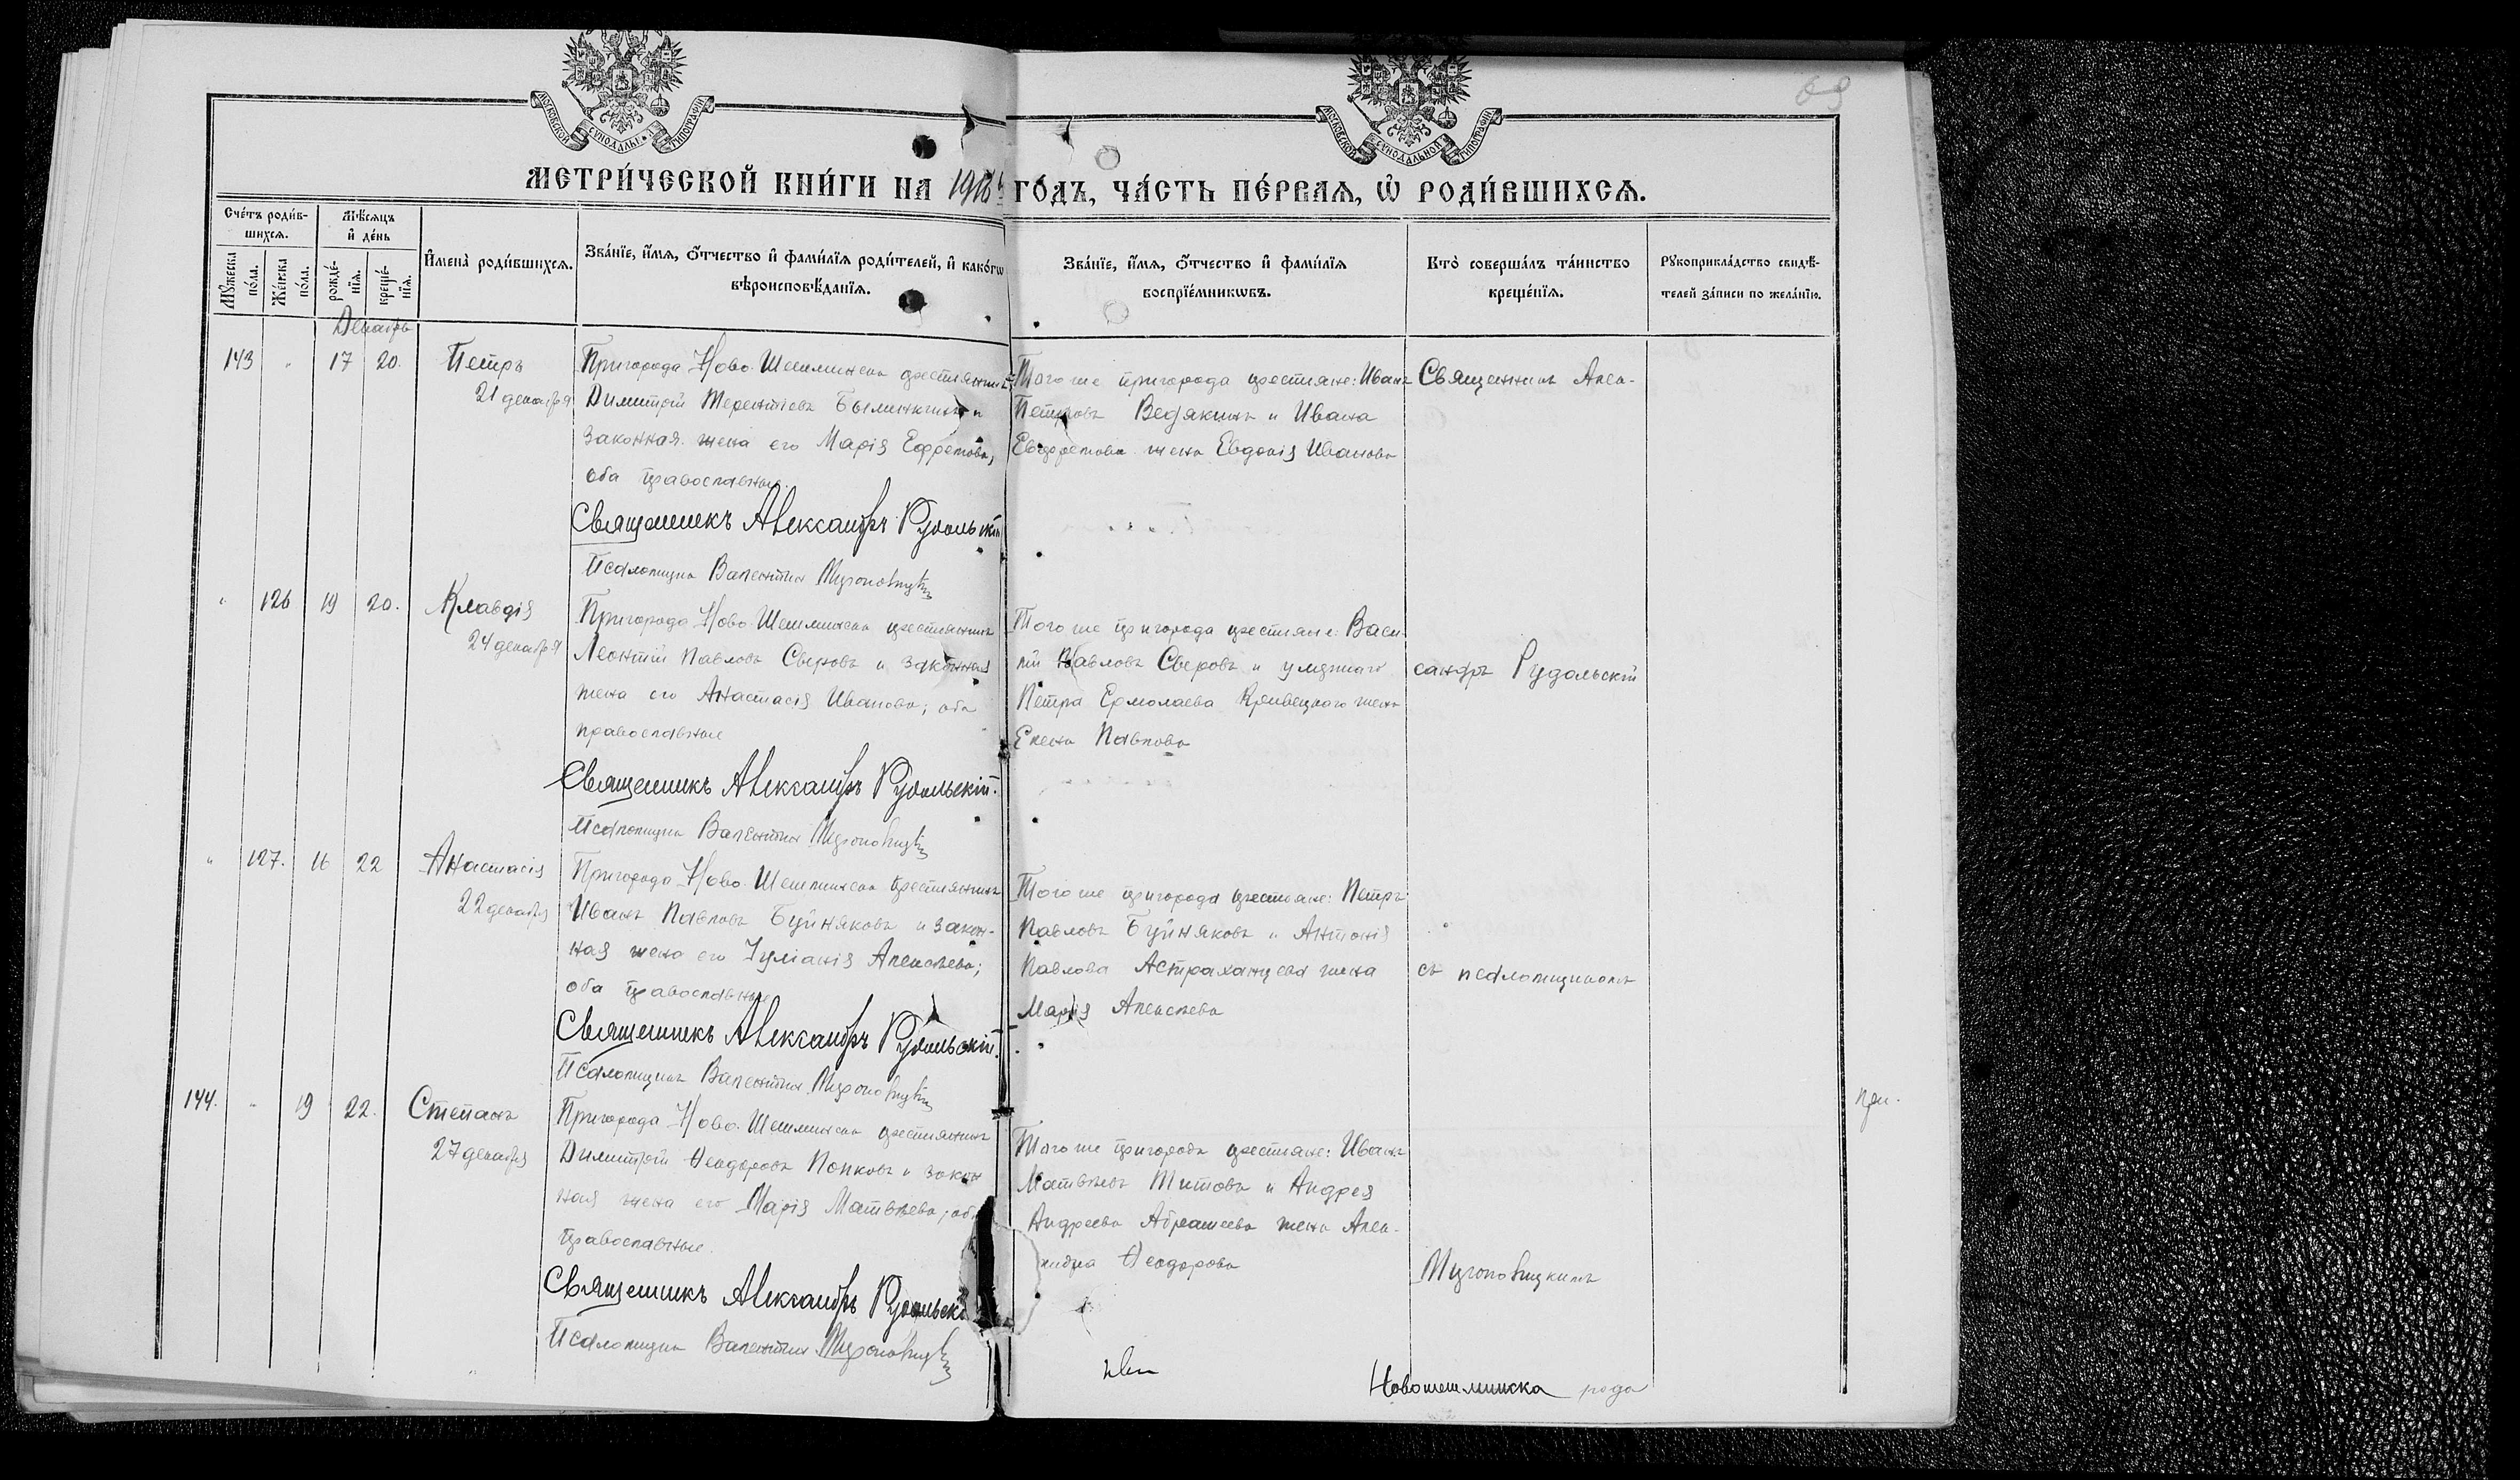 МОСКОВСКОЙ СУНОДАЛЬН. ТИПОГРАФІИ
МОСКОВСКОЙ СУНОДАЛЬНОЙ ТИПОГРАФІИ
МЕТРИ́ЧЕСКОЙ КНИ́ГИ НА 1916 ГО́ДЪ, ЧА́СТЬ ПЕ́РВАЯ, Ѡ РОДИ́ВШИХСѦ.
Сче́тъ роди́в-
шихсѧ.
Мꙋжеска по́ла.
Же́нска по́ла.
Мѣ́сѧцъ
и҆ де́нь
рожде́-
нїѧ.
креще́-
нїѧ.
И҆мена̀ роди́вшихсѧ.
Зва́нїе, и҆́мѧ, ѻ҆́тчество и҆ фами́лїѧ роди́телей, и҆ како́гѡ
вѣроисповѣ́данїѧ.
Зва́нїе, и҆́мѧ, ѻ҆́тчество и҆ фами́лїѧ
воспрїе́мникѡвъ.
Кто̀ соверша́лъ та́инство
креще́нїѧ.
Рꙋкоприкла́дство свидѣ́-
телей за́писи по жела́нїю.
Декабрь
143 " 17 20.
Петръ
21 декабря
Пригорода Ново-Шешминска крестьянинъ
Димитрій Терентіевъ
законная жена его Марія Ефремова,
оба православные.
Священникъ Александръ Рудольскій
Псаломщикъ Валентин
Того же пригорода крестьяне: Иванъ
Петровъ Ведякинъ и Ивана
жена Евдокія Иванова
Священникъ Алек-
" 126 19 20.
Клавдія
24 декабря
Пригорода Ново-Шешминска крестьянинъ
Леонтій Павловъ Сверовъ и законная
жена его Анастасія Иванова; оба
православные
Священникъ Александръ Рудольскій.
Псаломщикъ Валентин
Того же пригорода крестьяне: Васи-
лій Павловъ Сверовъ и
Петра Ермолаева жена
Елена Павлова
сандръ Рудольскій
" 127. 16 22
Анастасія
22 декабря
Пригорода Ново-Шешминска крестьянинъ
Иванъ Павловъ Буйняковъ и закон-
ная жена его Іуліанія Алексѣева;
оба православные
Священникъ Александръ Рудольскій.
Псаломщикъ Валентин
Того же пригорода крестьяне: Петръ
Павловъ Буйняковъ и Антонія
Павлова Астраханцева жена
Марія Алексѣева
съ псаломщикомъ
144. " 19 22.
Степанъ
27 декабря
Пригорода Ново-Шешминска крестьянинъ
Димитрій Ѳеодоровъ Попковъ и закон
ная жена его Марія Матвѣева; оба
православные.
Священникъ Александръ Рудольскі
Псаломщикъ Валентин
Того же пригорода крестьяне: Иванъ
Матвѣевъ Титовъ и Андрея
Андреева Абрашеева жена Алек-
сандра Ѳеодорова
при.
Новошешминска рода